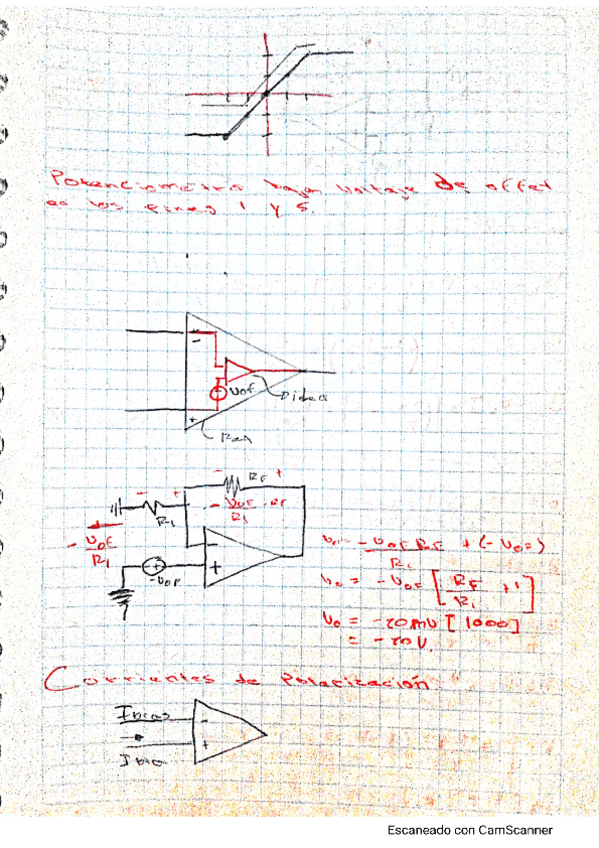 Potenciometro bajar voltaje de offet
en los pines 1 y 5.
-
VOF
Dideal
+
Real
- RF +
- +
R1
- VOF . RF
R1
- VOF
R1
-
+
-VOF
Vo = - VOF RF + (-VOF)
R1
Vo = -VOF [ RF + 1 ]
R1
Vo = -20mV [ 1000 ]
= -20V.
Corrientes de Polarización
Ibias -
+
Ibia
Escaneado con CamScanner